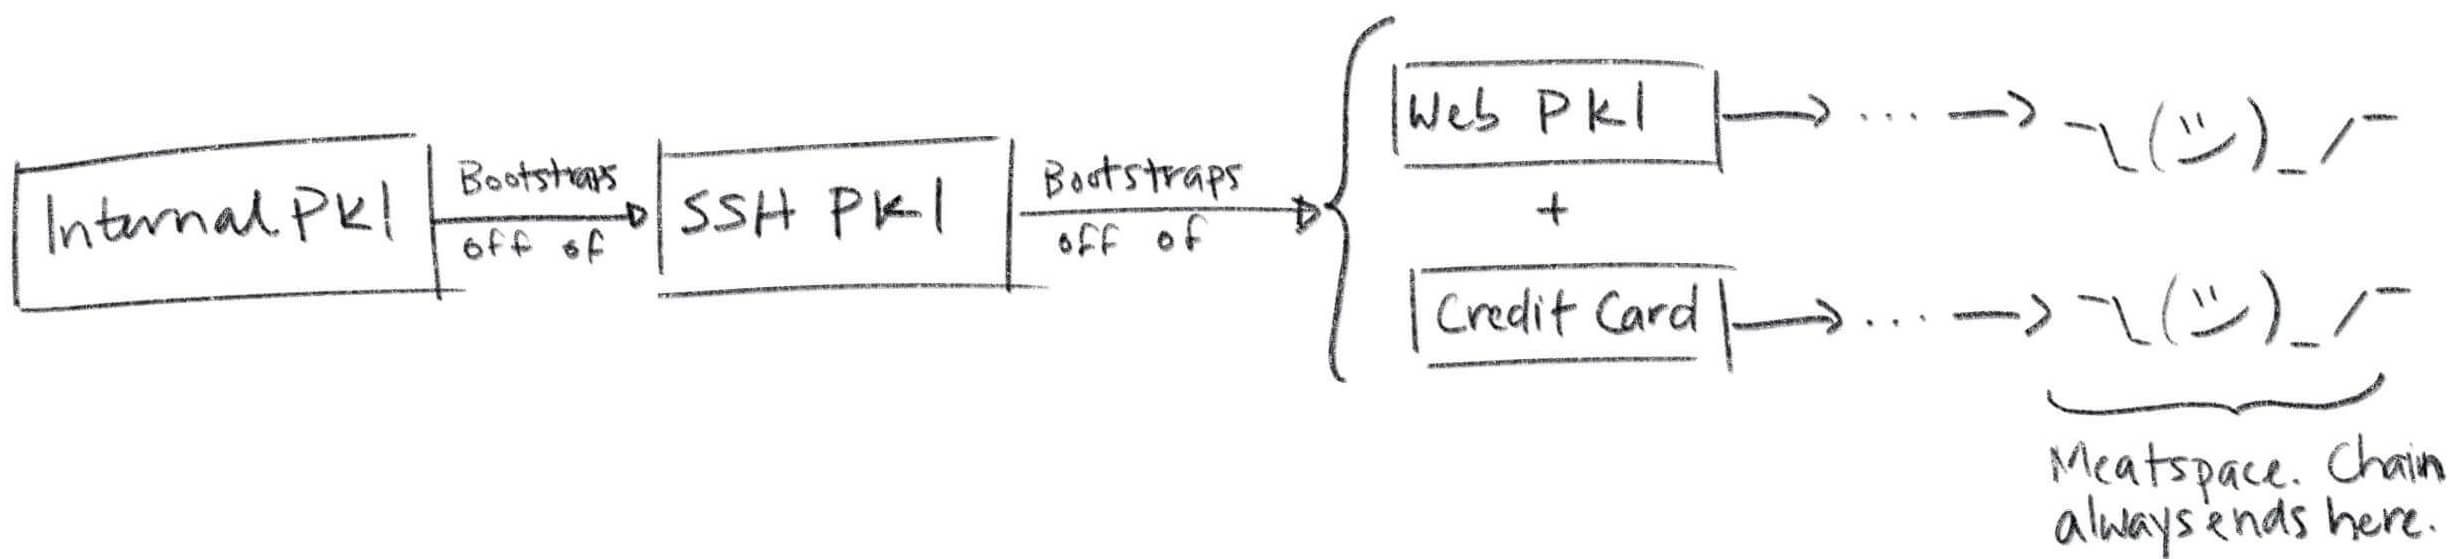 Internal PKI
Bootstraps
off of
SSH PKI
Bootstraps
off of
Web PKI
...
¯\(ツ)_/¯
+
Credit Card
...
¯\(ツ)_/¯
Meatspace. Chain
always ends here.